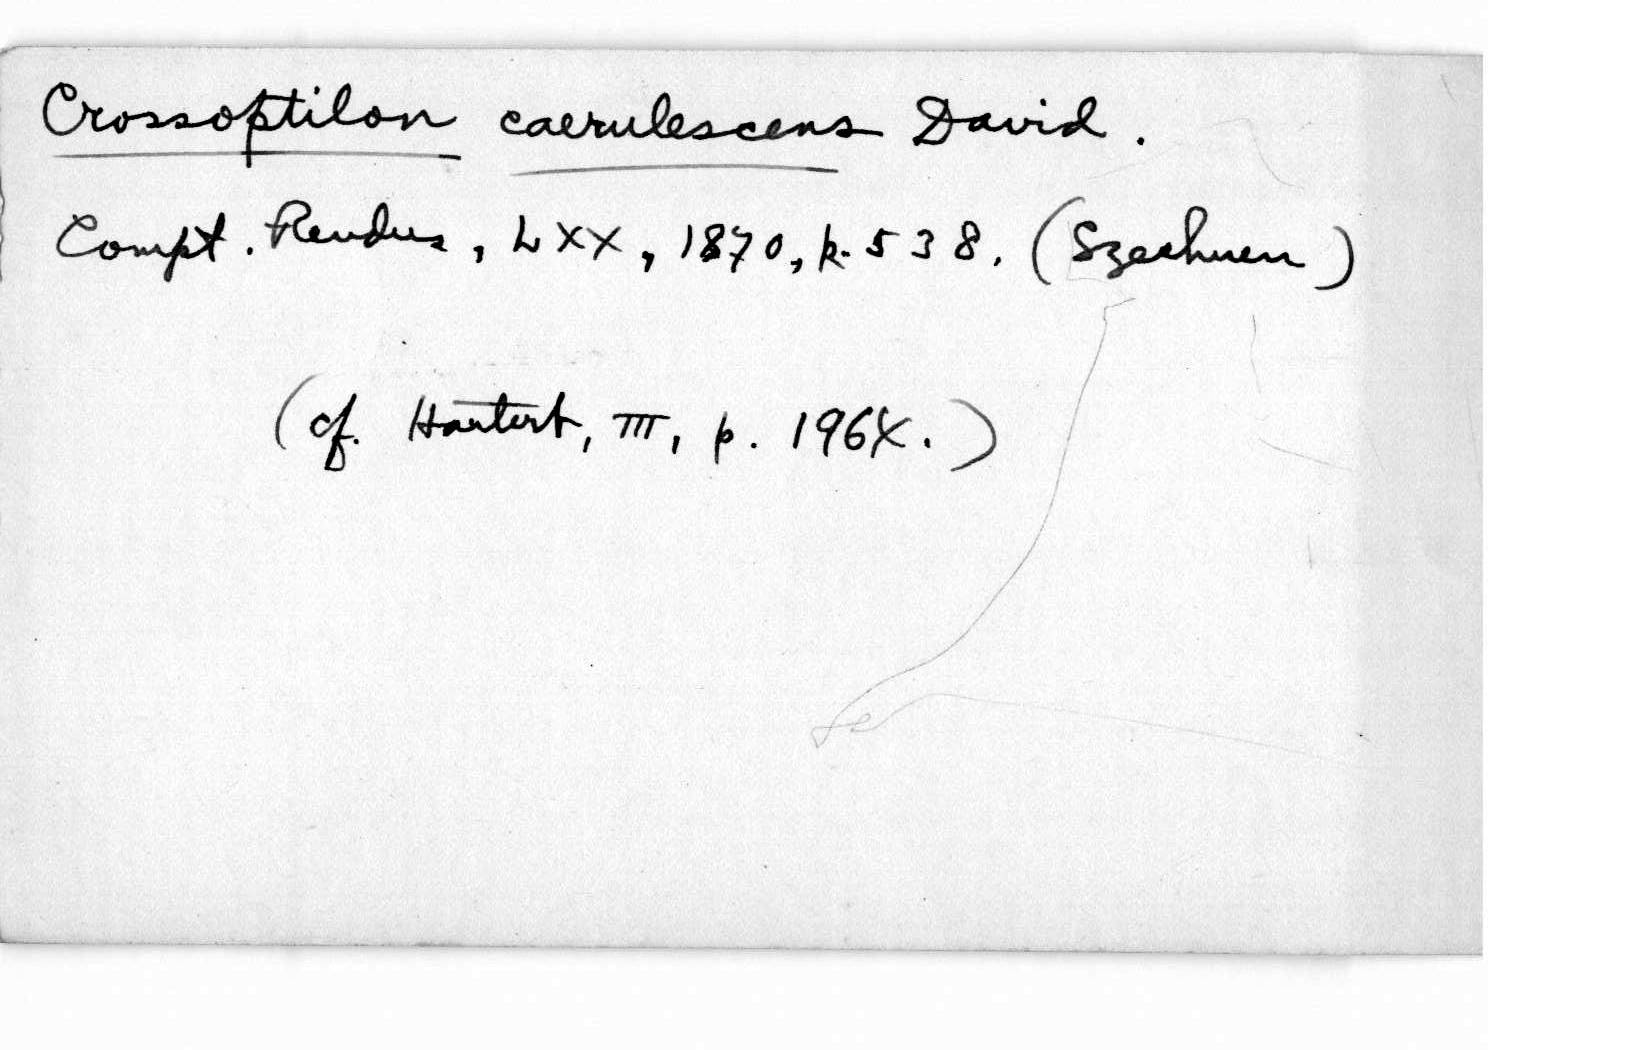 Crossoptilon caerulescens David.
Compt. Rendus, LXX, 1870, p. 538. (Szechuen)
(cf. Hartert, III, p. 1964.)